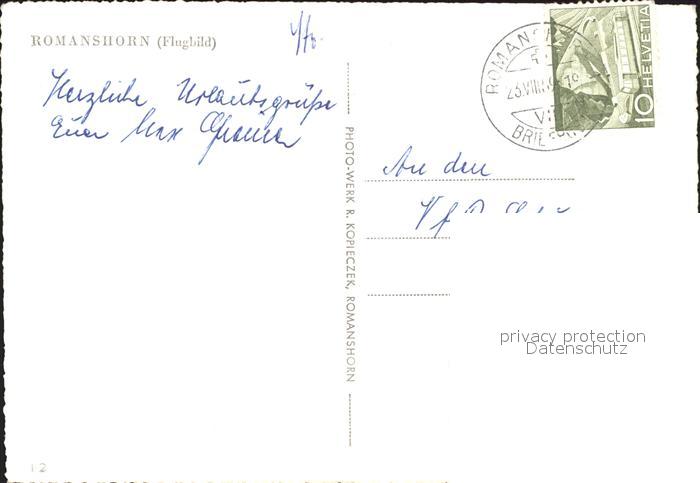 ROMANSHORN (Flugbild)
Herzliche Urlaubsgrüße
Euer Max
PHOTO-WERK R. KOPIECZEK, ROMANSHORN
ROMANSH
BRIEF
10 HELVETIA
An den
privacy protection
Datenschutz
12